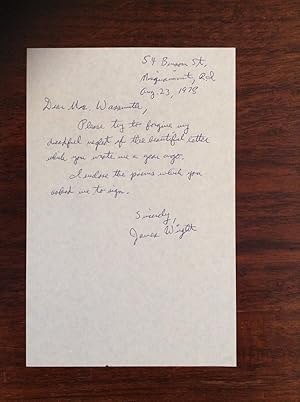 54 Benson St,
Misquamicut, R.I.
Aug. 23, 1978
Dear Mrs.
Please try to forgive my
dreadful neglect of the beautiful letter
which you wrote me a year ago.
I enclose the poems which you
asked me to sign.
Sincerely,
James Wright